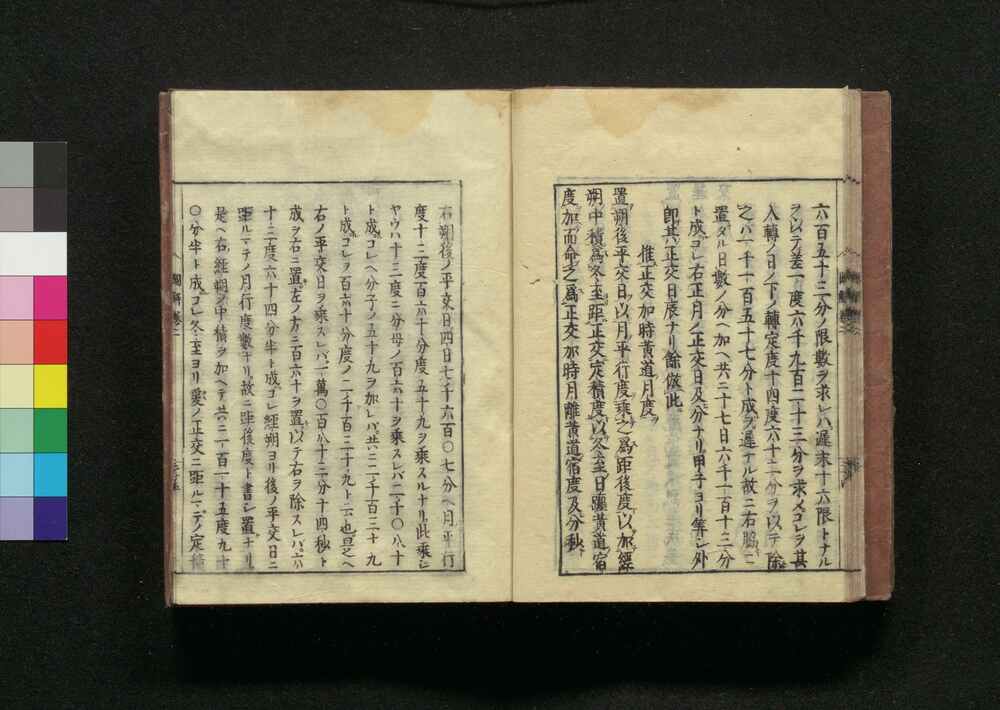 六百五十二分ノ限數ヲ求レハ遲末十六限トナル
ヲ以テ差一度六千九百二十三分ヲ求メコレヲ其
入轉ノ日ノ下ノ轉定度十四度六十二分ヲ以テ除
之バ一千一百五十七分ト成ヲ遲ナル故ニ右脇ニ
置タル日數ノ分ヘ加ヘ共二十七日六千一百十三分
ト成コレ右正月ノ正交日及分ナリ甲子ヨリ筭シ外
即其正交日辰ナリ餘倣此
推正交加時黄道月度
置朔後平交日以月平行度乘之為距後度以加經
朔中積為冬至距正交定積度以冬至日躔黄道宿
度加而命之為正交加時月離黄道宿度及分秒
右朔後ノ平交日四日七千六百〇七分ヘ月平行
度十三度百六十分度五十九ヲ乘スルナリ此乘シ
ヤウハ十三度ニ分母ノ百六十ヲ乘スレバ二千〇八十
ト成コレヘ分子ノ五十九ヲ加レバ共ニ二千百三十九
ト成コレヲ百六十分度ノ二千百三十九ト云也是ヘ
右ノ平交日ヲ乘スレバ一萬〇百八十三分十四秒ト
成ヲ右ニ置左ノ方ニ百六十ヲ置以テ右ヲ除スレバ六
十三度六十四分半ト成コレ經朔ヨリ後ノ平交日ニ
距ルマテノ月行度數ナリ故ニ距後度ト書シ置ナリ
是ヘ右經朔ノ中積ヲ加ヘテ共ニ一百一十五度九十
〇分半ト成コレ冬至ヨリ爰ノ正交ニ距ルマデノ定積